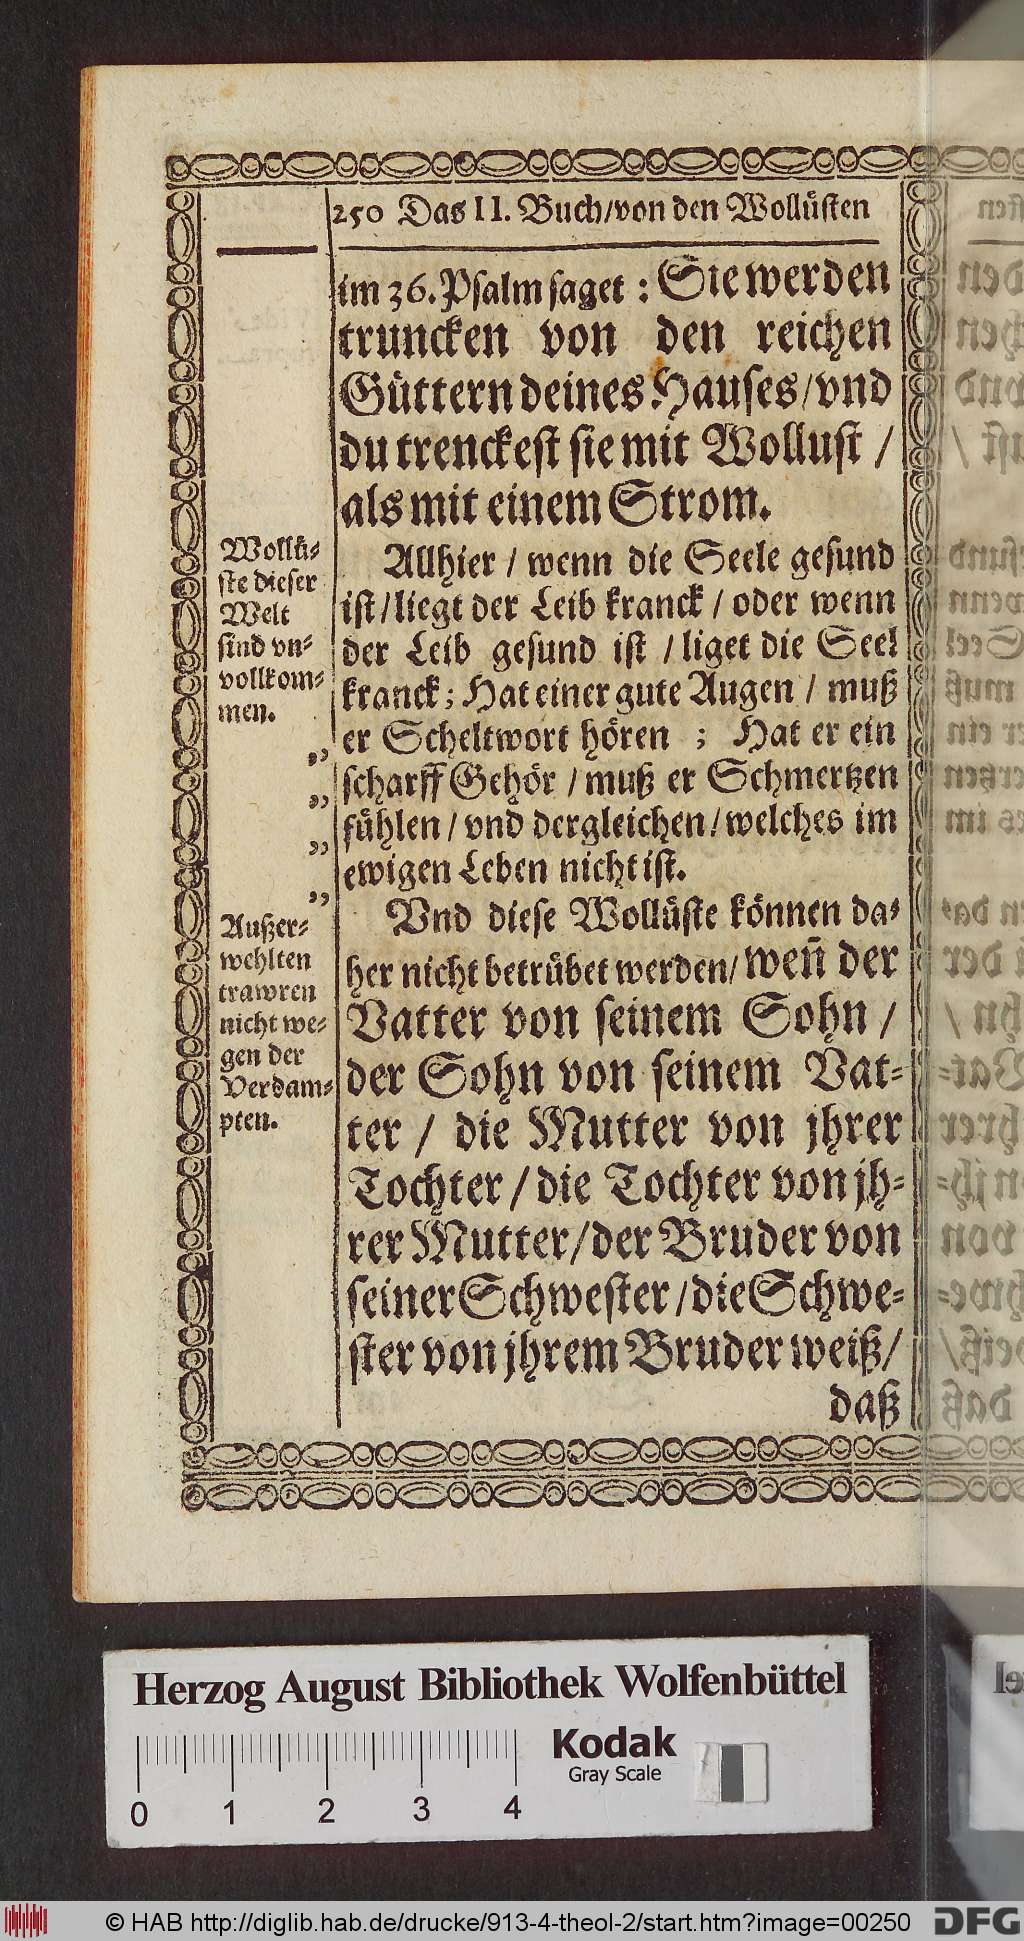 250 Das II. Buch/von den Wollüsten
im 36. Psalm saget : Sie werden
truncken von den reichen
Güttern deines Hauses/vnd
du trenckest sie mit Wollust /
als mit einem Strom.
Allhier / wenn die Seele gesund
ist/liegt der Leib kranck / oder wenn
der Leib gesund ist / liget die Seel
kranck; Hat einer gute Augen / muß
er Scheltwort hören ; Hat er ein
scharff Gehör / muß er Schmertzen
fühlen / vnd dergleichen/welches im
ewigen Leben nicht ist.
Vnd diese Wollüste können da-
her nicht betrübet werden/ weñ der
Vatter von seinem Sohn /
der Sohn von seinem Vat-
ter / die Mutter von jhrer
Tochter / die Tochter von jh-
rer Mutter/der Bruder von
seiner Schwester /die Schwe-
ster von jhrem Bruder weiß/
daß
Wollü-
ste dieser
Welt
sind vn-
vollkom-
men.
„
„
„
„
Außer-
wehlten
trawren
nicht we-
gen der
Verdam-
pten.
Herzog August Bibliothek Wolfenbüttel
Kodak
Gray Scale
0 1 2 3 4
© HAB http://diglib.hab.de/drucke/913-4-theol-2/start.htm?image=00250
DFG